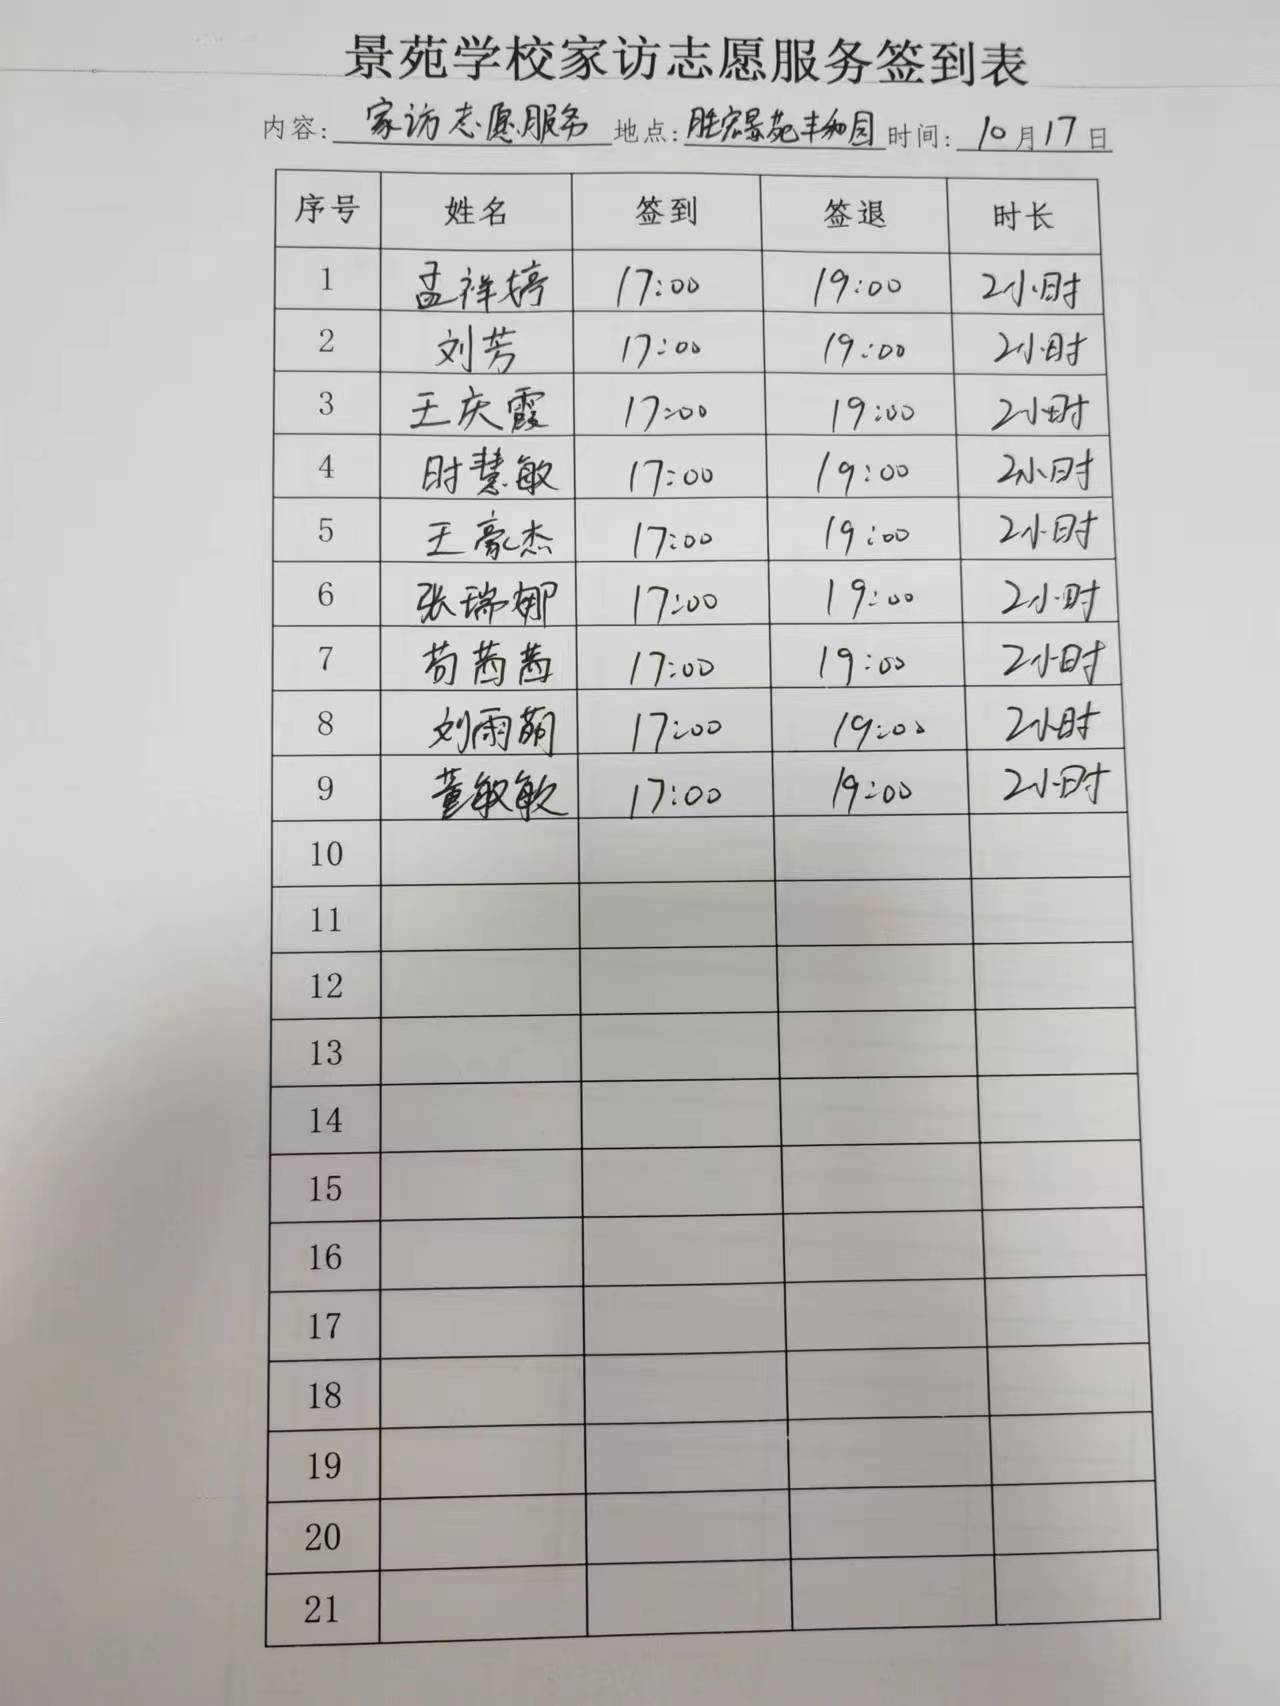 景苑学校家访志愿服务签到表
内容: 家访志愿服务 地点: 胜宏景苑丰和园 时间: 10月17日
序号 姓名 签到 签退 时长
1 孟祥婷 17:00 19:00 2小时
2 刘芳 17:00 19:00 2小时
3 王庆霞 17:00 19:00 2小时
4 时慧敏 17:00 19:00 2小时
5 王豪杰 17:00 19:00 2小时
6 张瑞娜 17:00 19:00 2小时
7 苟茜茜 17:00 19:00 2小时
8 刘雨萌 17:00 19:00 2小时
9 董敏敏 17:00 19:00 2小时
10
11
12
13
14
15
16
17
18
19
20
21